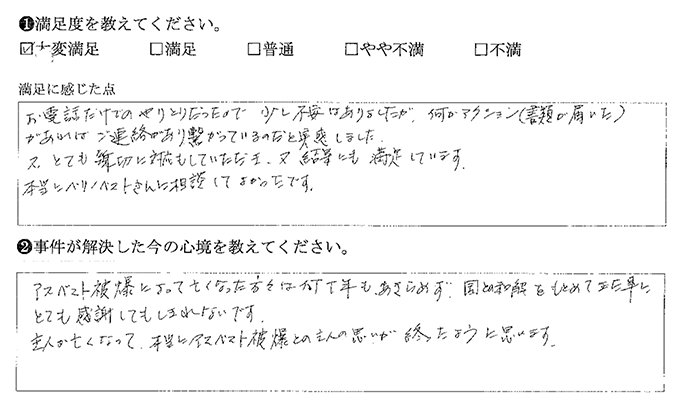 ❶満足度を教えてください。
☑大変満足 □満足 □普通 □やや不満 □不満
満足に感じた点
お電話だけでのやりとりだったので 少し不安はありましたが、何かアクション(書類が届いた)
があればご連絡があり繋がっているのだと実感しました。
又、とても親切に対応もしていただき、又 結果にも 満足しています。
本当にベリーベストさんに相談してよかったです。
❷事件が解決した今の心境を教えてください。
アスベスト被爆によって亡くなった方々は何十年も、あきらめず、国との和解をもとめて来た事に
とても感謝してもしきれないです。
主人が亡くなって、本当にアスベスト被爆との主人の思いが 終ったように思います。